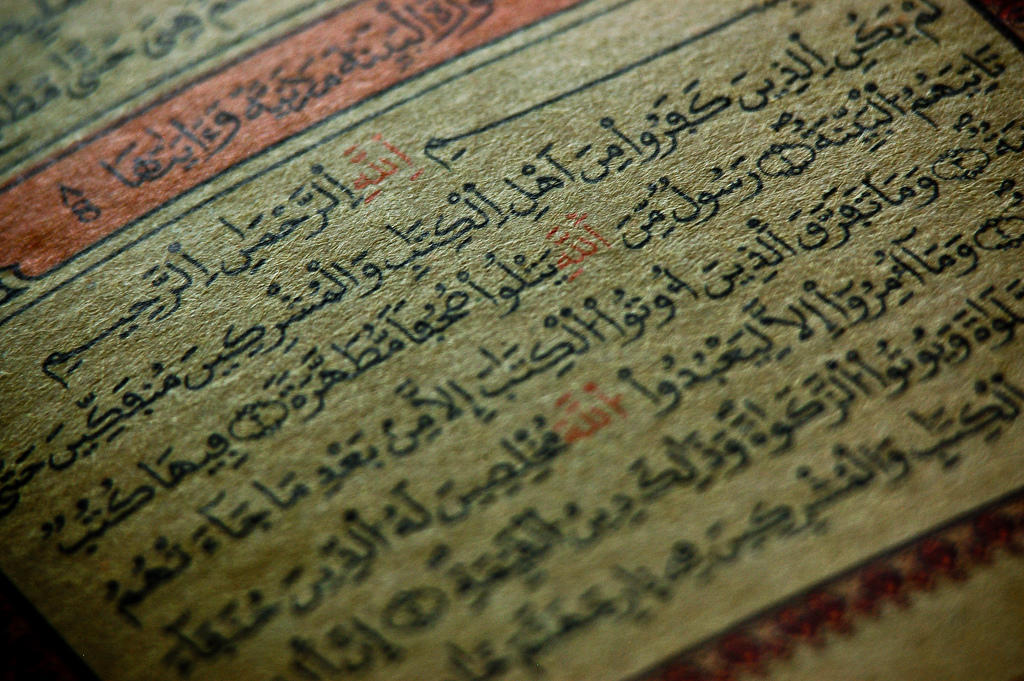 هِيَ حَتَّىٰ مَطْلَعِ
سُورَةُ الْبَيِّنَةِ مَدَنِيَّةٌ وَءَايَتُهَا ٨
بِسْمِ اِ۬للَّهِ اِ۬لرَّحْمَٰنِ اِ۬لرَّحِيمِ
لَمْ يَكُنِ اِ۬لذِينَ كَفَرُواْ مِنَ اَهْلِ اِ۬لْكِتَٰبِ وَالْمُشْرِكِينَ مُنفَكِّينَ حَتَّىٰ
تَاتِيَهُمُ اُ۬لْبَيِّنَةُ ۝ رَسُولٌ مِّنَ اَ۬للَّهِ يَتْلُواْ صُحُفاً مُّطَهَّرَةً ۝ فِيهَا كُتُبٌ
قَيِّمَةٌ ۝ وَمَا تَفَرَّقَ اَ۬لذِينَ أُوتُواْ اُ۬لْكِتَٰبَ إِلَّا مِنۢ بَعْدِ مَا جَآءَتْهُمُ
۝ وَمَآ أُمِرُوٓاْ إِلَّا لِيَعْبُدُواْ اُ۬للَّهَ مُخْلِصِينَ لَهُ اُ۬لدِّينَ حُنَفَآءَ
اَ۬لصَّلَوٰةَ وَيُوتُواْ اُ۬لزَّكَوٰةَ وَذَٰلِكَ دِينُ اُ۬لْقَيِّمَةِ ۝ إِنَّ
اِ۬لْكِتَٰبِ وَالْمُشْرِكِينَ فِي نَارِ جَهَنَّمَ